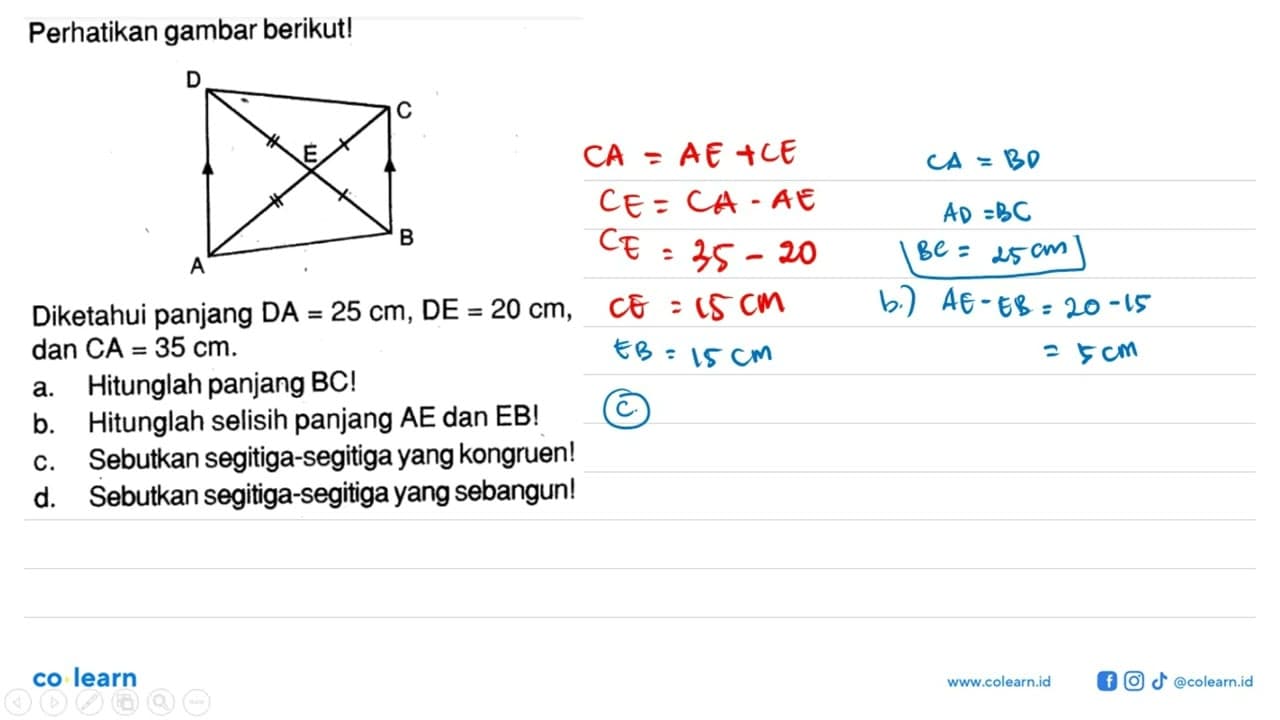 Perhatikan gambar berikut!
D
C
E
B
A
Diketahui panjang DA = 25 cm, DE = 20 cm,
dan CA = 35 cm.
a. Hitunglah panjang BC!
b. Hitunglah selisih panjang AE dan EB!
c. Sebutkan segitiga-segitiga yang kongruen!
d. Sebutkan segitiga-segitiga yang sebangun!
CA = AE + CE
CE = CA - AE
CE = 35 - 20
CE = 15 CM
EB = 15 CM
C.
CA = BD
AD = BC
BC = 25 cm
b.) AE - EB = 20 - 15
= 5 CM
co learn
www.colearn.id
@colearn.id